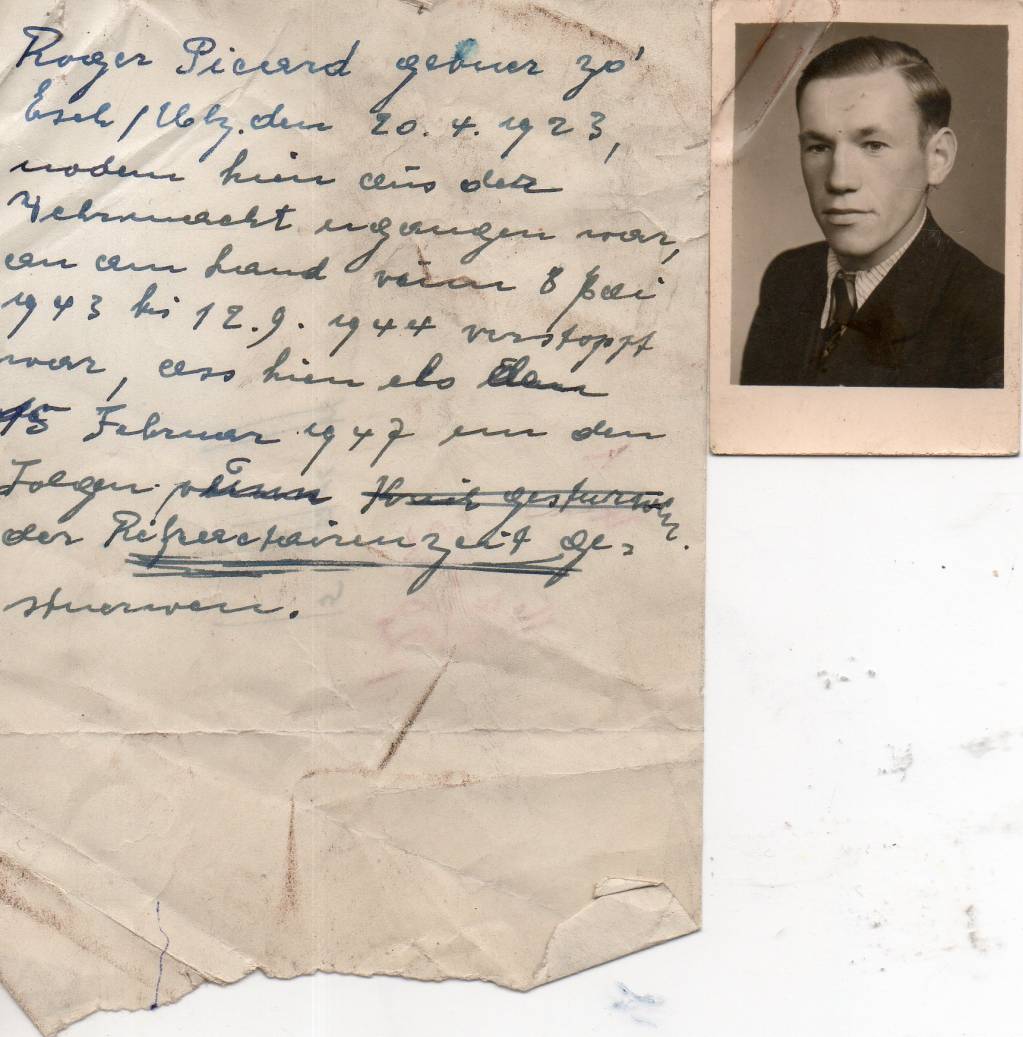 Roger Piccard gebuer zo'
Esch/Uelz. den 20. 4. 1923,
nodem hien aus der
Wehrmacht ugangen war,
an am Land vum 8
1943 bis 12. 9. 1944 verstoppt
war, ass hien els
15 Februar 1947 un den
Folgen gesturwen
der Refractairenzeit ge-
stuerwen.